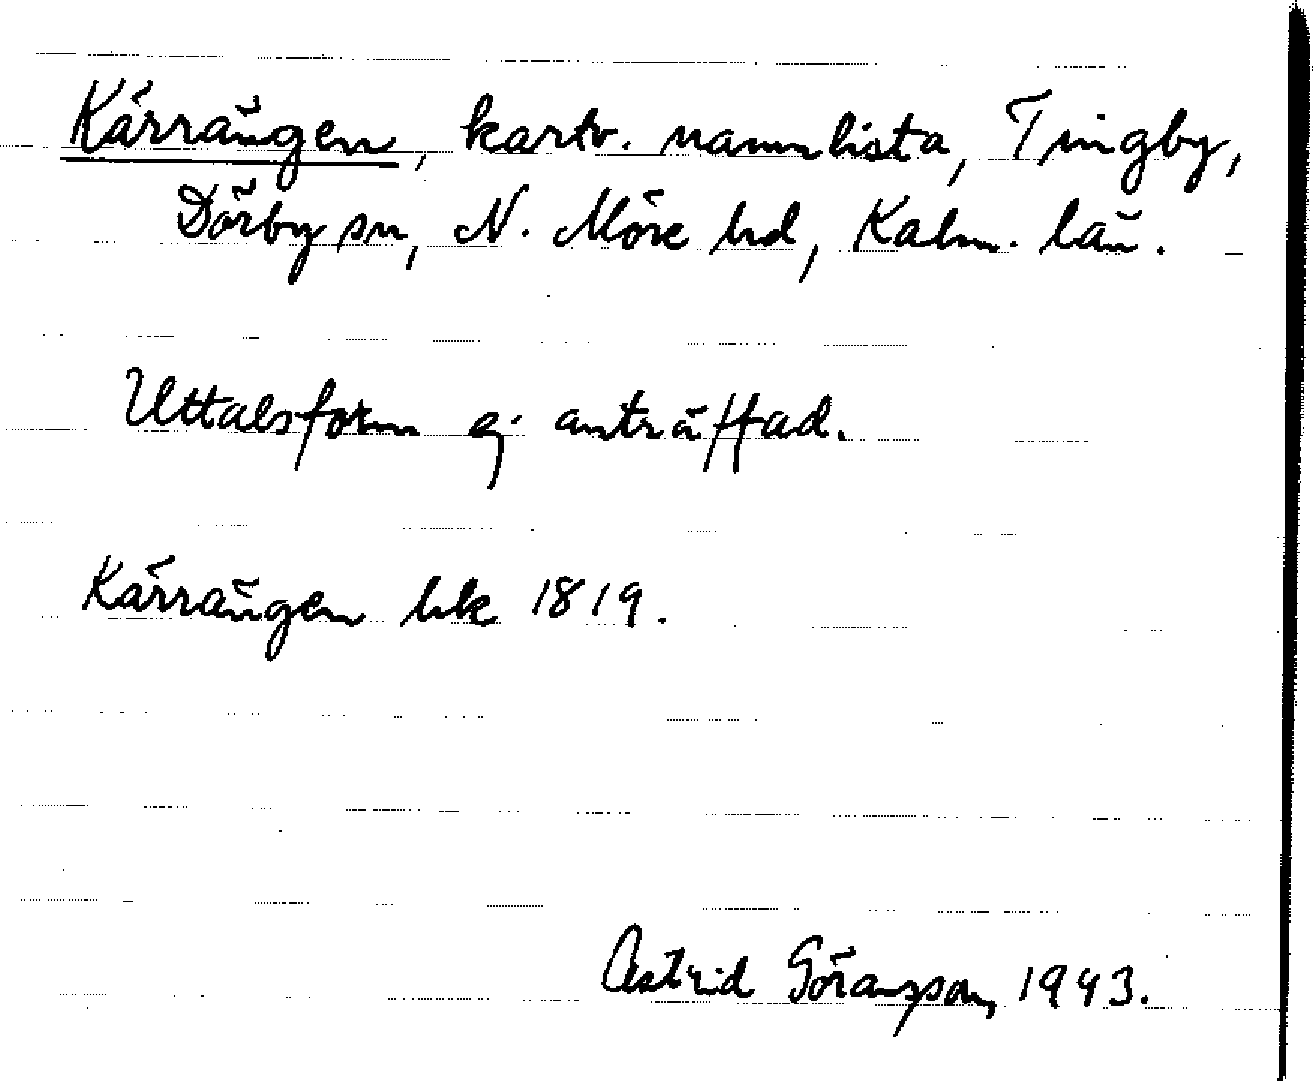 Kärrängen, kartv. namnlista, Tingby,
Dörby sn, N. Möre hd, Kalm. län.
Uttalsform ej anträffad.
Kärrängen hk 1819.
Astrid Göransson, 1943.